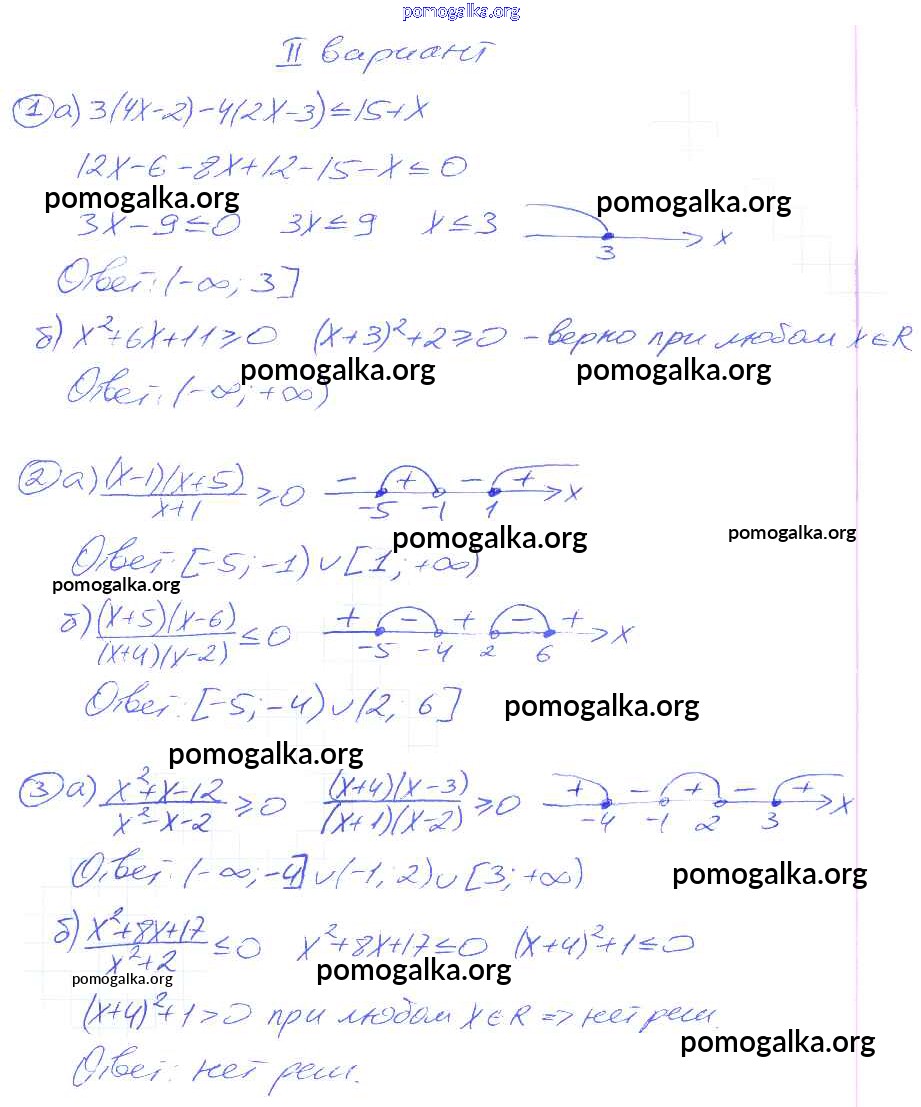 pomogalka.org
II вариант
① а) 3(4x-2)-4(2x-3)≤15+x
12x-6-8x+12-15-x≤0
pomogalka.org pomogalka.org
3x-9≤0 3x≤9 x≤3 3 x
Ответ: (-∞; 3]
б) x²+6x+11≥0 (x+3)²+2≥0 - верно при любом x∈R
pomogalka.org pomogalka.org
Ответ: (-∞; +∞)
② а) (x-1)(x+5)/x+1 ≥0 - + - + -5 -1 1 x
pomogalka.org pomogalka.org
Ответ: [-5; -1) ∪ [1; +∞)
pomogalka.org
б) (x+5)(x-6)/(x+4)(x-2) ≤0 + - + - + -5 -4 2 6 x
Ответ: [-5; -4) ∪ (2; 6] pomogalka.org
pomogalka.org
③ а) x²+x-12/x²-x-2 ≥0 (x+4)(x-3)/(x+1)(x-2) ≥0 + - + - + -4 -1 2 3 x
Ответ: (-∞; -4] ∪ (-1; 2) ∪ [3; +∞) pomogalka.org
б) x²+8x+17/x²+2 ≤0 x²+8x+17≤0 (x+4)²+1≤0
pomogalka.org pomogalka.org
(x+4)²+1>0 при любом x∈R => нет реш.
pomogalka.org
Ответ: нет реш.